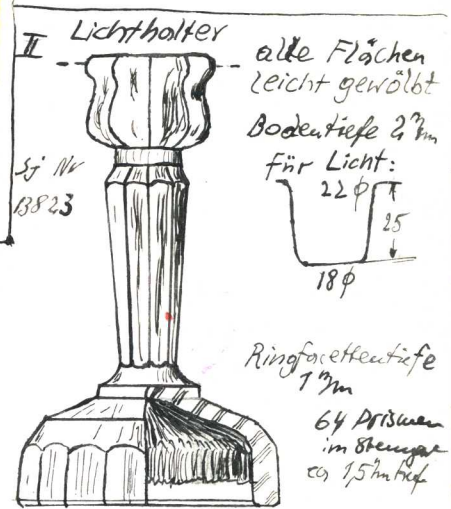 II Lichthalter
alle Flächen
leicht gewölbt
Bodentiefe 2 m/m
für Licht:
22 ϕ
25
18 ϕ
Sj Nr
13823
Ringfacettentiefe
1 m/m
64 Prismen
im
ca 1,5 m/m tief